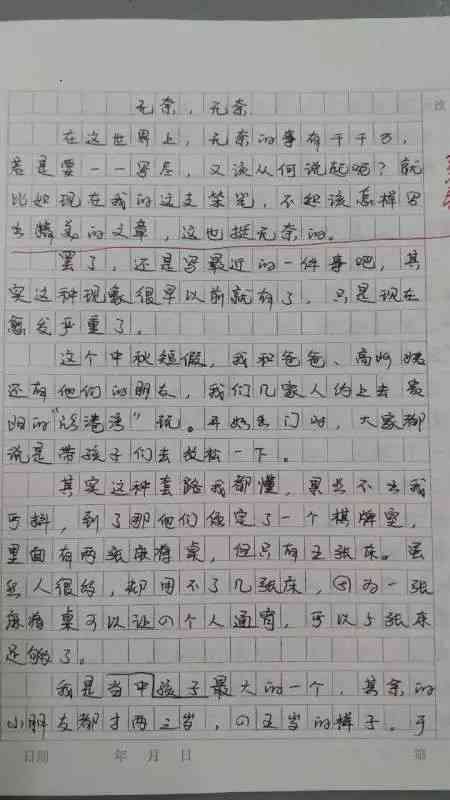 无奈，无奈
在这世界上，无奈的事有千千万，
若是要一一写尽，又该从何说起呢？就
比如现在我的这支笔，不知该怎样写
出精美的文章，这也挺无奈的。
罢了，还是写最近的一件事吧，其
实这种现象很早以前就有了，只是现在
愈发严重了。
这个中秋短假，我和爸爸、高
还有他们的朋友，我们几家人约上去
的“港湾”玩。开始出门时，大家都
说是带孩子们去放松一下。
其实这种套路我都懂，果然不出我
所料，到了那他们便定了一个棋牌室，
里面有两张麻将桌，但只有五张床。虽
然人很多，却用不了几张床，因为一张
麻将桌可以让四个人通宵，所以5张床
足够了。
我是当中孩子最大的一个，其余的
小朋友都才两三岁，四五岁的样子。于
日期 年 月 日 第